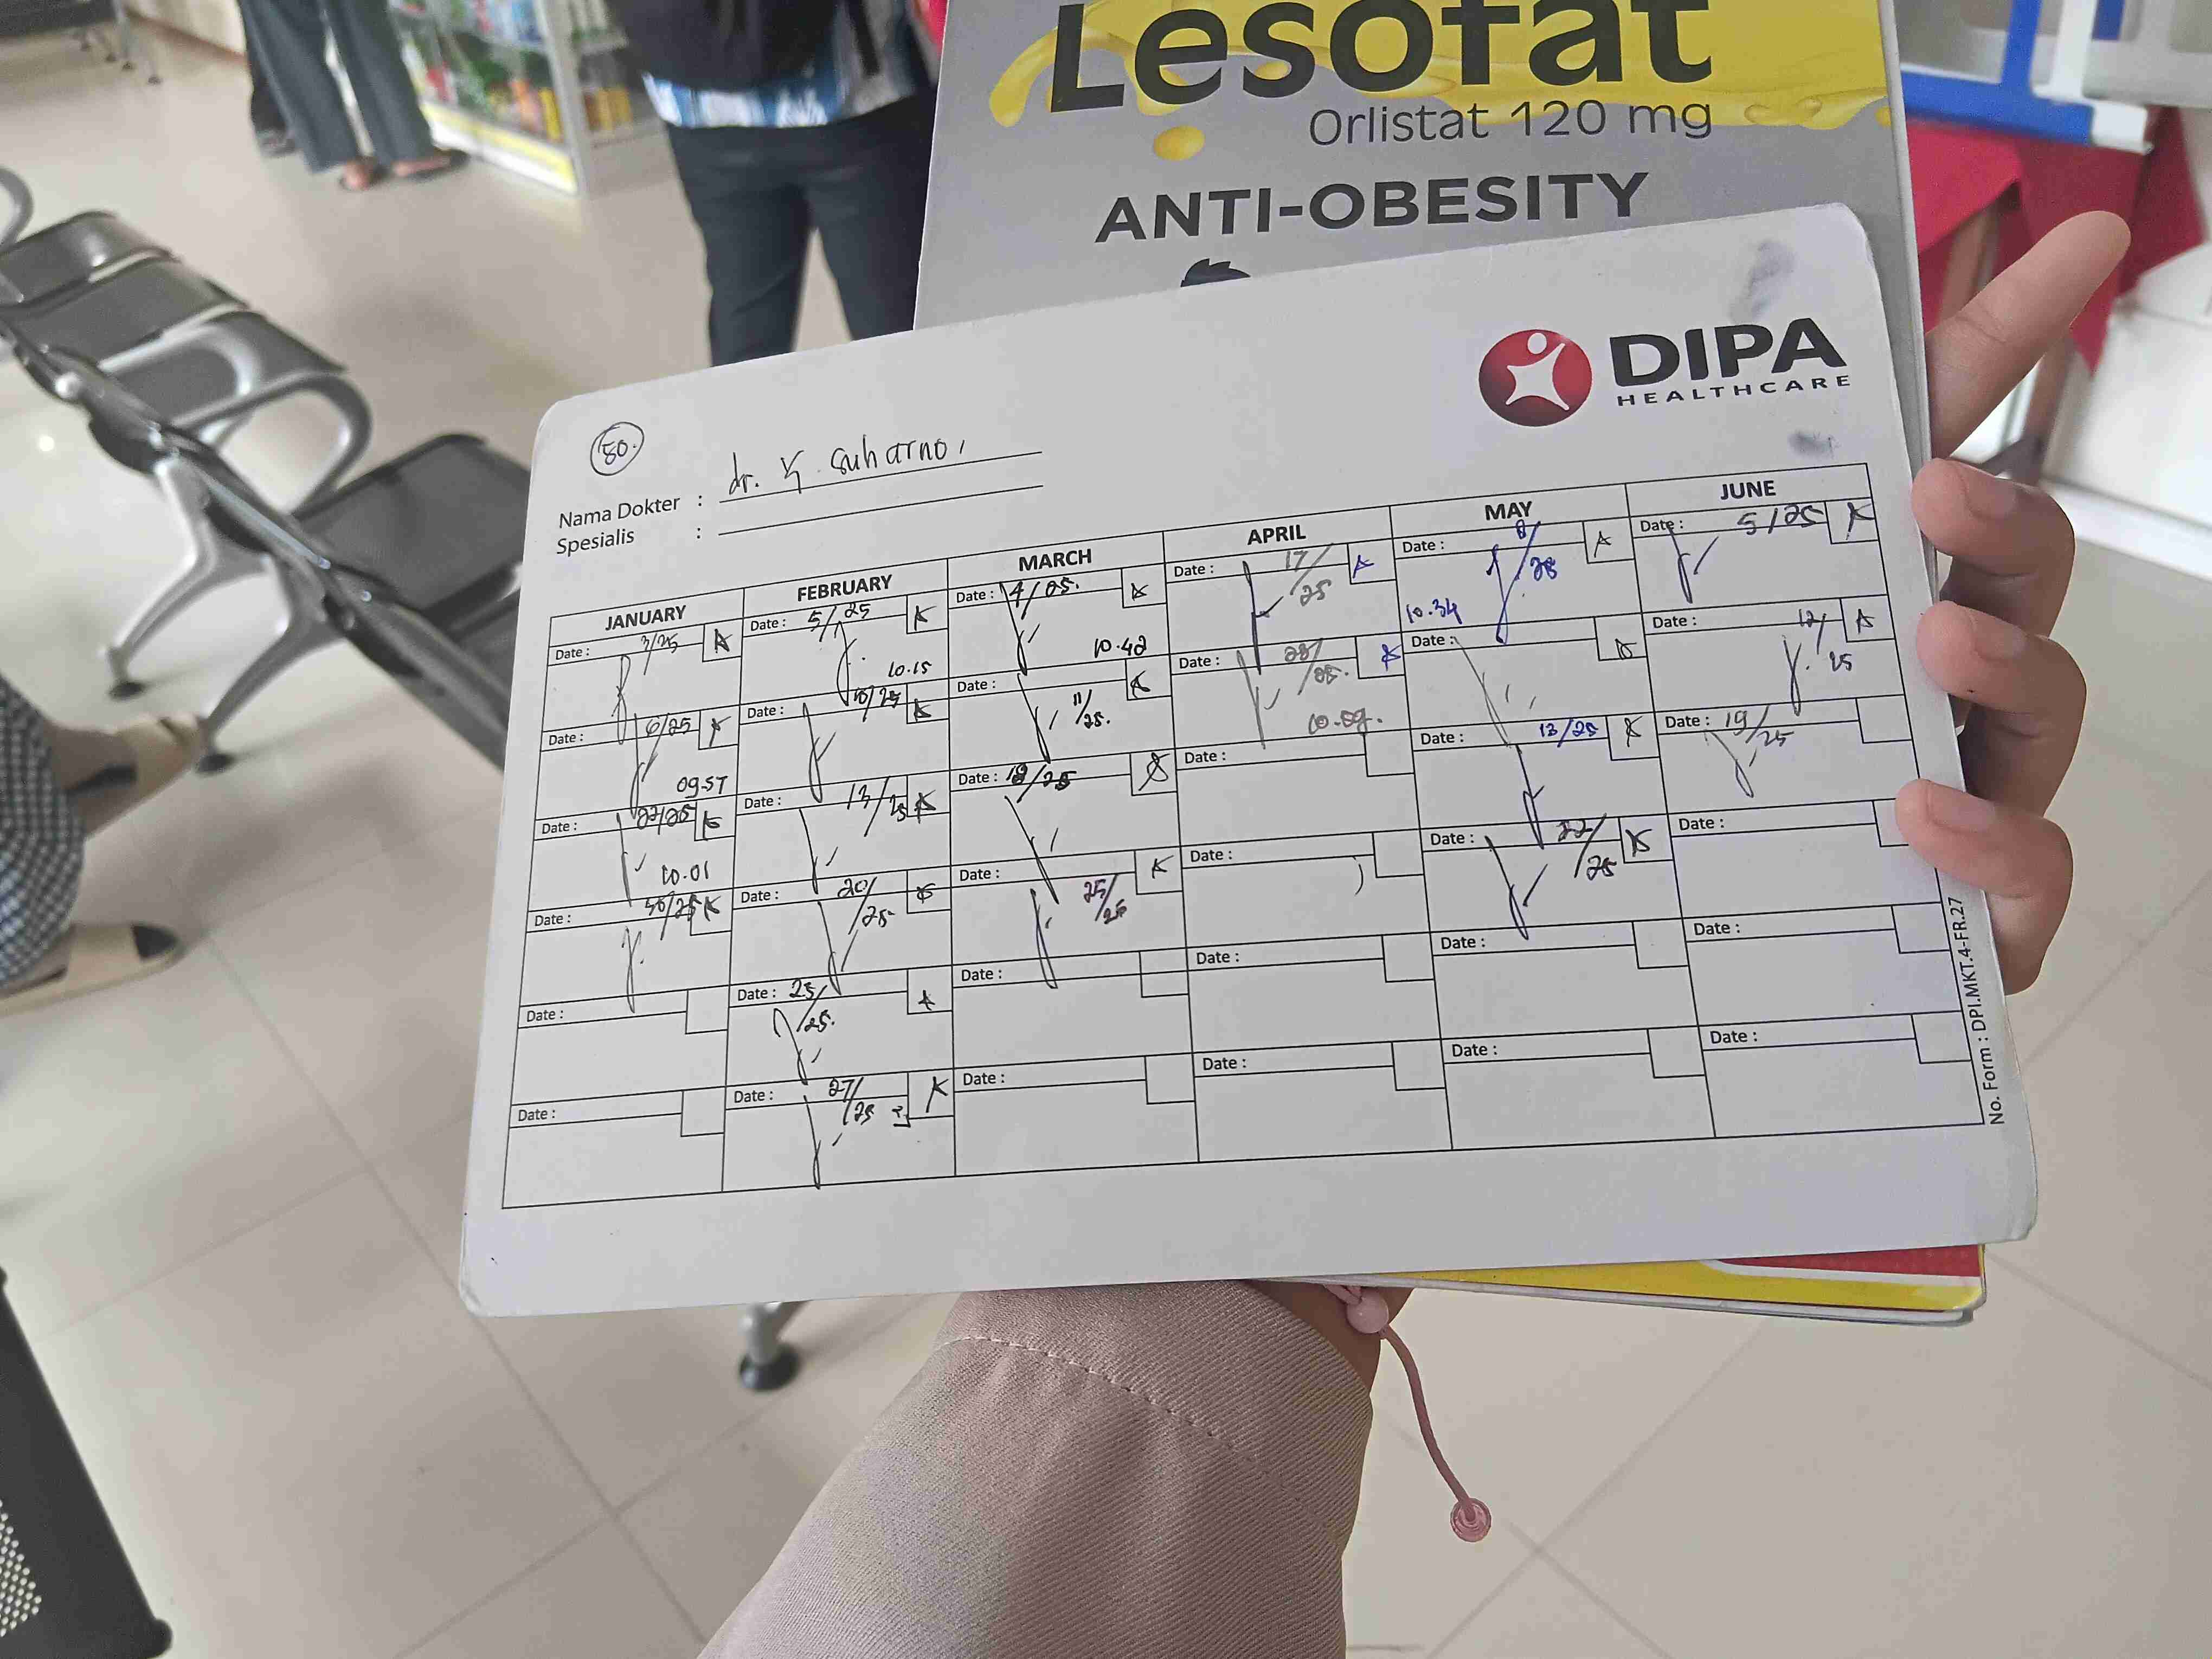 Lesofat
Orlistat 120 mg
ANTI-OBESITY
DIPA
HEALTHCARE
50.
Nama Dokter : dr. Suharno
Spesialis :
JANUARY FEBRUARY MARCH APRIL MAY JUNE
Date : 3/25 Date : 5/25 Date : 4/25. Date : 17/25 Date : 8/25 Date : 5/25
10.15 10.42 10.34
Date : 6/25 Date : Date : 11/25. Date : 28/25. Date : Date : 12/25
09.57 10.59.
Date : 22/25 Date : 13/25 Date : 18/25 Date : Date : 13/25 Date : 19/25
10.01
Date : 30/25 Date : 20/25 Date : 25/25 Date : Date : 22/25 Date :
Date : Date : 25/25. Date : Date : Date : Date :
Date : Date : 27/25 Date : Date : Date : Date :
No. Form : DPI.MKT.4-FR.27